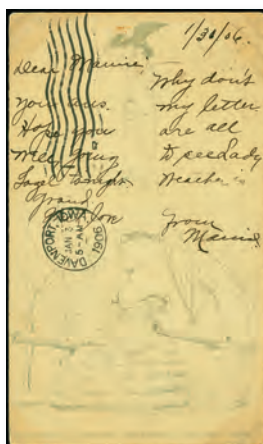 1/30/06.
Dear Mamie; Why don't
you ans. my letter
Hope you are all
well Going to see Lady
tonight. Weather is
Grand
From
Mamie
DAVENPORT, IOWA
JAN
5-AM
1906